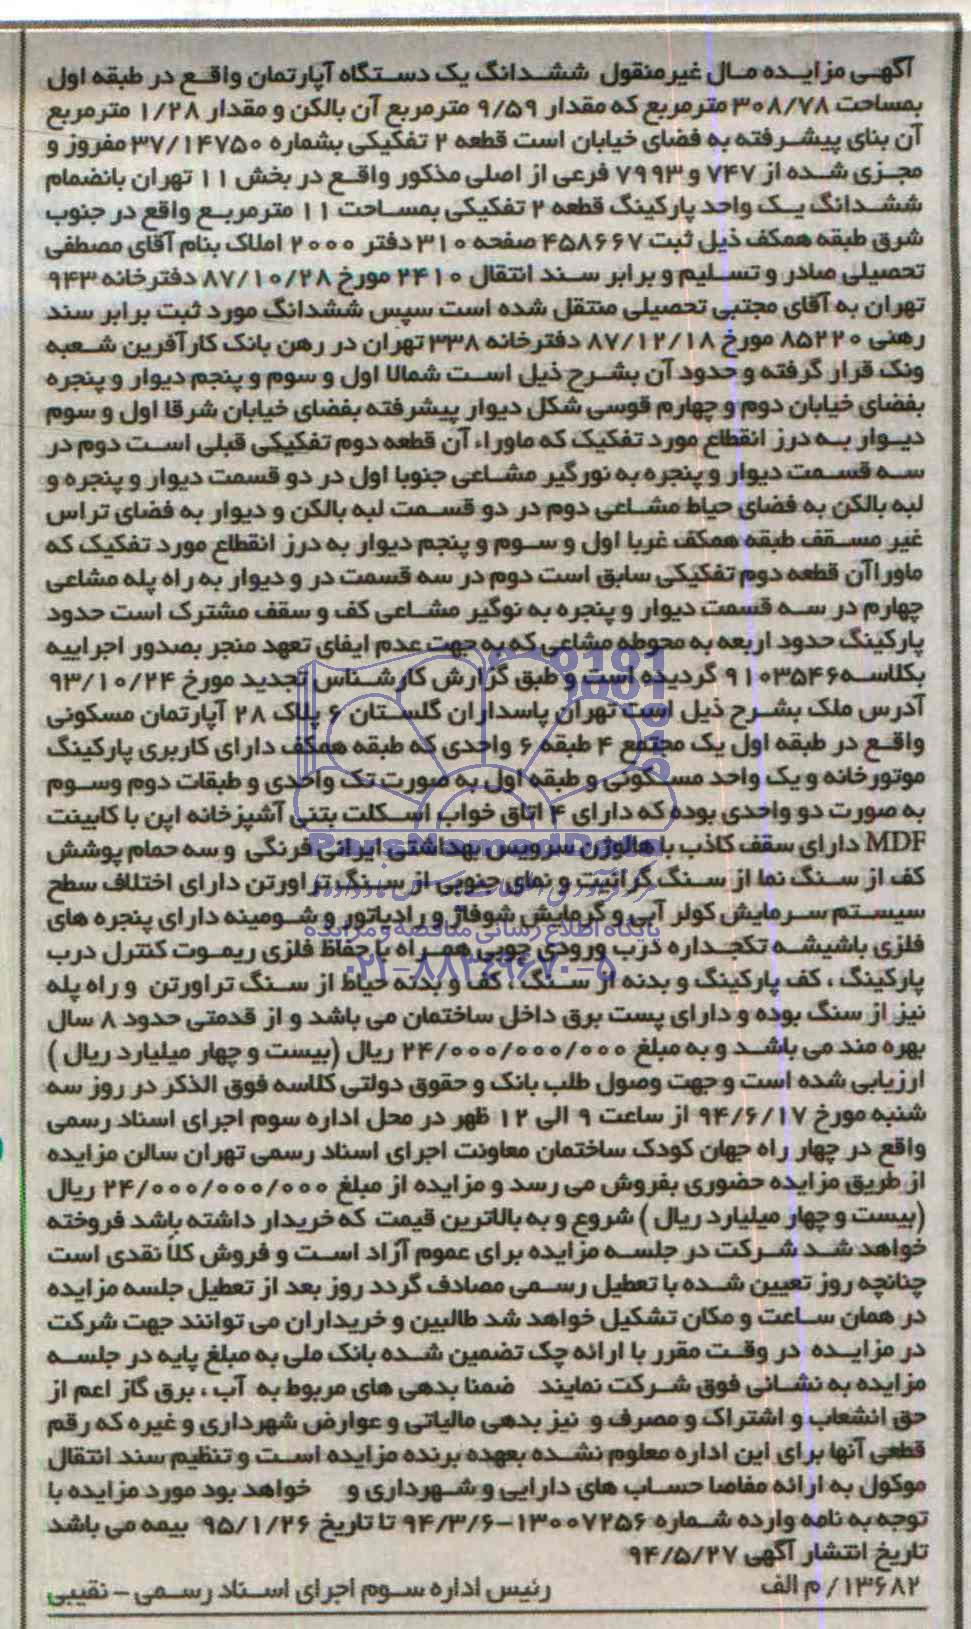 آگهی مزایده مال غیرمنقول ششدانگ یک دستگاه آپارتمان واقع در طبقه اول
بمساحت ۳۰۸/۷۸ مترمربع که مقدار ۹/۵۹ مترمربع آن بالکن و مقدار ۱/۲۸ مترمربع
آن بنای پیشرفته به فضای خیابان است قطعه ۲ تفکیکی بشماره ۳۷/۱۴۷۵۰ مفروز و
مجزی شده از ۷۴۷ و ۷۹۹۳ فرعی از اصلی مذکور واقع در بخش ۱۱ تهران بانضمام
ششدانگ یک واحد پارکینگ قطعه ۲ تفکیکی بمساحت ۱۱ مترمربع واقع در جنوب
شرق طبقه همکف ذیل ثبت ۴۵۸۶۶۷ صفحه ۳۱۰ دفتر ۲۰۰۰ املاک بنام آقای مصطفی
تحصیلی صادر و تسلیم و برابر سند انتقال ۲۴۱۰ مورخ ۸۷/۱۰/۲۸ دفترخانه ۹۴۳
تهران به آقای مجتبی تحصیلی منتقل شده است سپس ششدانگ مورد ثبت برابر سند
رهنی ۸۵۲۲۰ مورخ ۸۷/۱۲/۱۸ دفترخانه ۳۳۸ تهران در رهن بانک کارآفرین شعبه
ونک قرار گرفته و حدود آن بشرح ذیل است شمالا اول و سوم و پنجم دیوار و پنجره
بفضای خیابان دوم و چهارم قوسی شکل دیوار پیشرفته بفضای خیابان شرقا اول و سوم
دیوار به درز انقطاع مورد تفکیک که ماوراء آن قطعه دوم تفکیکی قبلی است دوم در
سه قسمت دیوار و پنجره به نورگیر مشاعی جنوبا اول در دو قسمت دیوار و پنجره و
لبه بالکن به فضای حیاط مشاعی دوم در دو قسمت لبه بالکن و دیوار به فضای تراس
غیر مسقف طبقه همکف غربا اول و سوم و پنجم دیوار به درز انقطاع مورد تفکیک که
ماوراآن قطعه دوم تفکیکی سابق است دوم در سه قسمت در و دیوار به راه پله مشاعی
چهارم در سه قسمت دیوار و پنجره به نوگیر مشاعی کف و سقف مشترک است حدود
پارکینگ حدود اربعه به محوطه مشاعی که به جهت عدم ایفای تعهد منجر بصدور اجراییه
بکلاسه ۹۱۰۳۵۴۶ گردیده است و طبق گزارش کارشناس تجدید مورخ ۹۳/۱۰/۲۴
آدرس ملک بشرح ذیل است تهران پاسداران گلستان ۶ پلاک ۲۸ آپارتمان مسکونی
واقع در طبقه اول یک مجتمع ۴ طبقه ۶ واحدی که طبقه همکف دارای کاربری پارکینگ
موتورخانه و یک واحد مسکونی و طبقه اول به صورت تک واحدی و طبقات دوم وسوم
به صورت دو واحدی بوده که دارای ۴ اتاق خواب اسکلت بتنی آشپزخانه اپن با کابینت
MDF دارای سقف کاذب با هالوژن سرویس بهداشتی ایرانی فرنگی و سه حمام پوشش
کف از سنگ نما از سنگ گرانیت و نمای جنوبی از سنگ تراورتن دارای اختلاف سطح
سیستم سرمایش کولر آبی و گرمایش شوفاژ و رادیاتور و شومینه دارای پنجره های
فلزی باشیشه تکجداره درب ورودی چوبی همراه با حفاظ فلزی ریموت کنترل درب
پارکینگ ، کف پارکینگ و بدنه از سنگ ، کف و بدنه حیاط از سنگ تراورتن و راه پله
نیز از سنگ بوده و دارای پست برق داخل ساختمان می باشد و از قدمتی حدود ۸ سال
بهره مند می باشد و به مبلغ ۲۴/۰۰۰/۰۰۰/۰۰۰ ریال (بیست و چهار میلیارد ریال )
ارزیابی شده است و جهت وصول طلب بانک و حقوق دولتی کلاسه فوق الذکر در روز سه
شنبه مورخ ۹۴/۶/۱۷ از ساعت ۹ الی ۱۲ ظهر در محل اداره سوم اجرای اسناد رسمی
واقع در چهار راه جهان کودک ساختمان معاونت اجرای اسناد رسمی تهران سالن مزایده
از طریق مزایده حضوری بفروش می رسد و مزایده از مبلغ ۲۴/۰۰۰/۰۰۰/۰۰۰ ریال
(بیست و چهار میلیارد ریال ) شروع و به بالاترین قیمت که خریدار داشته باشد فروخته
خواهد شد شرکت در جلسه مزایده برای عموم آزاد است و فروش کلاً نقدی است
چنانچه روز تعیین شده با تعطیل رسمی مصادف گردد روز بعد از تعطیل جلسه مزایده
در همان ساعت و مکان تشکیل خواهد شد طالبین و خریداران می توانند جهت شرکت
در مزایده در وقت مقرر با ارائه چک تضمین شده بانک ملی به مبلغ پایه در جلسه
مزایده به نشانی فوق شرکت نمایند ضمنا بدهی های مربوط به آب ، برق گاز اعم از
حق انشعاب و اشتراک و مصرف و نیز بدهی مالیاتی و عوارض شهرداری و غیره که رقم
قطعی آنها برای این اداره معلوم نشده بعهده برنده مزایده است و تنظیم سند انتقال
موکول به ارائه مفاصا حساب های دارایی و شهرداری و خواهد بود مورد مزایده با
توجه به نامه وارده شماره ۱۳۰۰۷۲۵۶-۹۴/۳/۶ تا تاریخ ۹۵/۱/۲۶ بیمه می باشد
تاریخ انتشار آگهی ۹۴/۵/۲۷
۱۳۶۸۲/ م الف رئیس اداره سوم اجرای اسناد رسمی – نقیبی
ParsNamadData
پایگاه اطلاع رسانی مناقصه و مزایده
۰۲۱-۸۸۳۴۹۶۷۰-۵